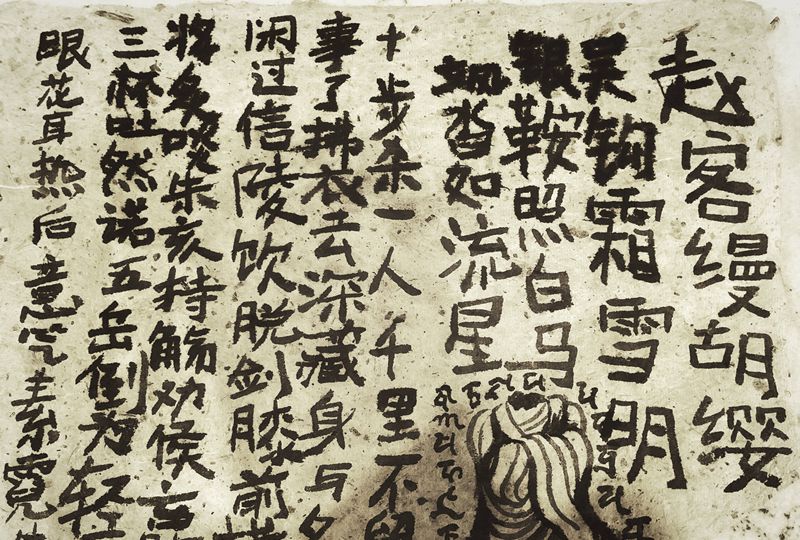 赵客缦胡缨
吴钩霜雪明
银鞍照白马
飒沓如流星
十步杀一人千里不留
事了拂衣去深藏身与
闲过信陵饮脱剑膝前
将炙啖朱亥持觞劝侯
三杯吐然诺五岳倒为轻
眼花耳热后意气素霓